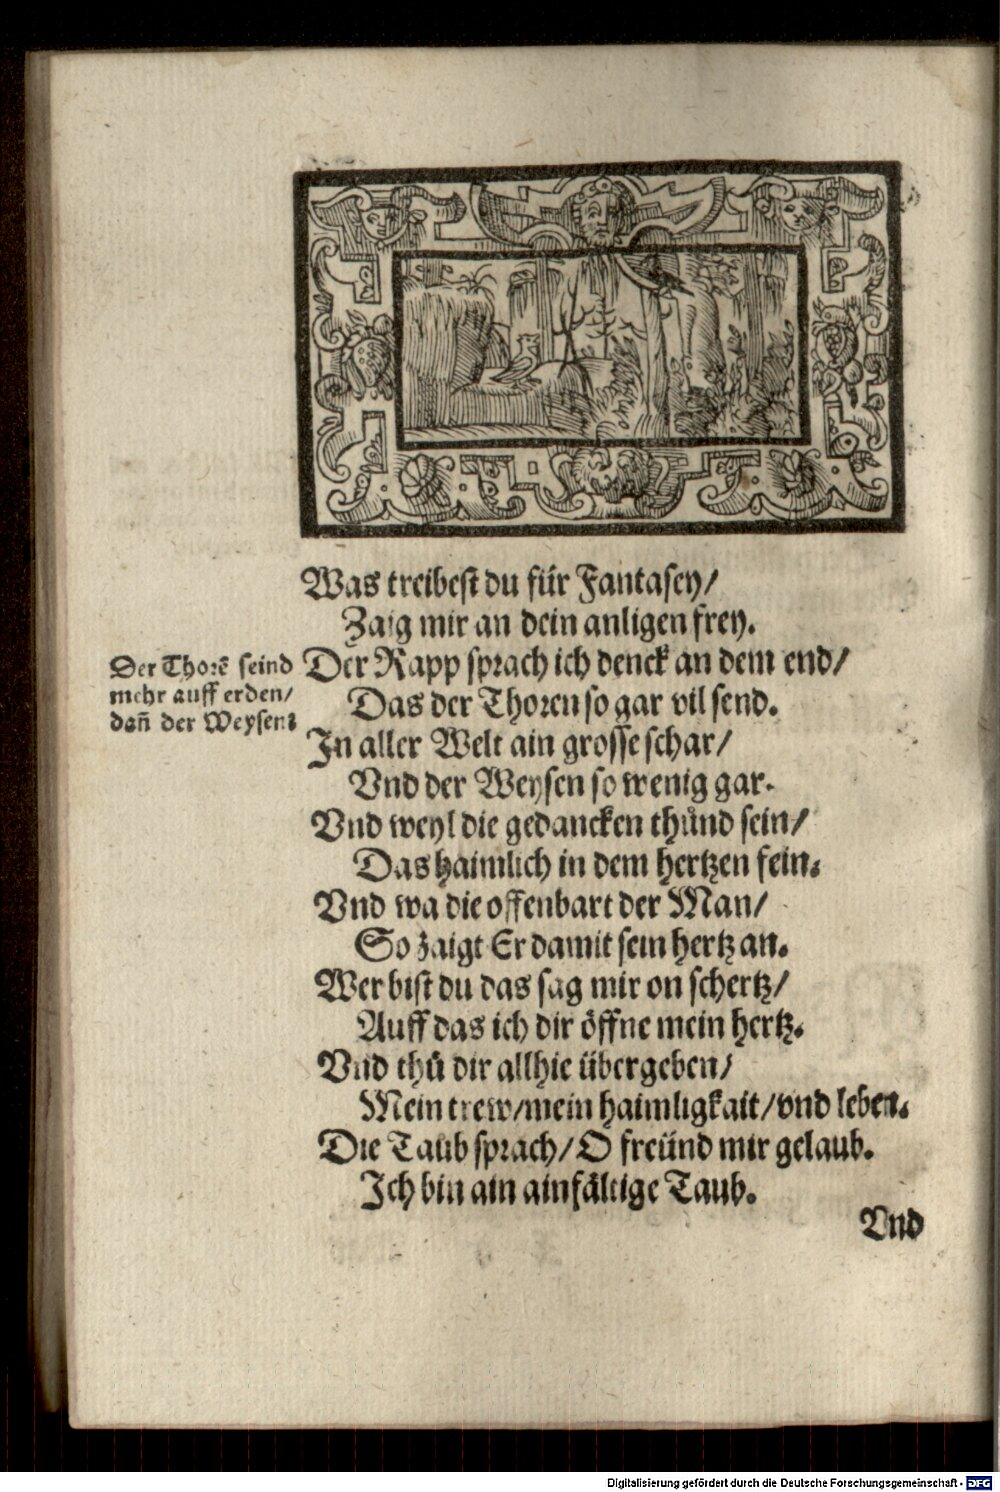 Was treibest du für Fantasey/
Zaig mir an dein anligen frey.
Der Thorẽ seind
mehr auff erden/
dañ der Weysen:
Der Rapp sprach ich denck an dem end/
Das der Thoren so gar vil send.
In aller Welt ain grosse schar/
Vnd der Weysen so wenig gar.
Vnd weyl die gedancken thůnd sein/
Das haimlich in dem hertzen fein.
Vnd wa die offenbart der Man/
So zaigt Er damit sein hertz an.
Wer bist du das sag mir on schertz/
Auff das ich dir öffne mein hertz.
Vnd thů dir allhie übergeben/
Mein trew/mein haimligkait/vnd leben.
Die Taub sprach/O freünd mir gelaub.
Ich bin ain ainfältige Taub.
Vnd
Digitalisierung gefördert durch die Deutsche Forschungsgemeinschaft - DFG